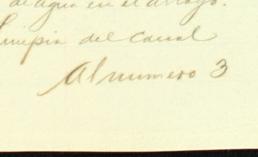 de agua en el arroyo.
limpia del canal
Al numero 3